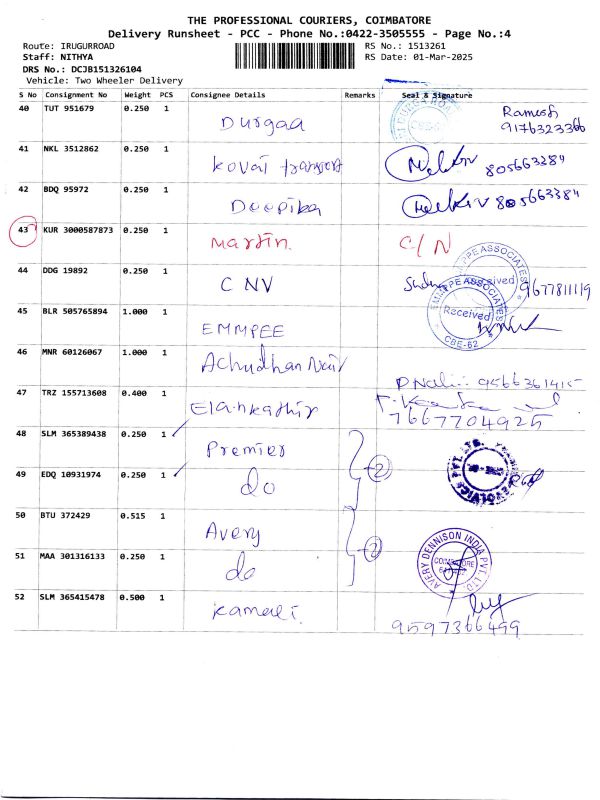 THE PROFESSIONAL COURIERS, COIMBATORE
Delivery Runsheet - PCC - Phone No.:0422-3505555 - Page No.:4
Route: IRUGURROAD
RS No.: 1513261
Staff: NITHYA
RS Date: 01-Mar-2025
DRS No.: DCJB151326104
Vehicle: Two Wheeler Delivery
S No Consignment No Weight PCS Consignee Details Remarks Seal & Signature
40 TUT 951679 0.250 1 Durgaa Ramesh
9176323366
41 NKL 3512862 0.250 1 Kovai transport 805663384
42 BDQ 95972 0.250 1 Deepika 805663384
43 KUR 3000587873 0.250 1 Martin. C/N
44 DDG 19892 0.250 1 CNV 9677811119
EMMPEE ASSOCIATES
Received
CBE-62
45 BLR 505765894 1.000 1 EMMPEE
46 MNR 60126067 1.000 1 Achudhan Nair 9566361415
47 TRZ 155713608 0.400 1 Elankathir
7667704925
48 SLM 365389438 0.250 1 Premier
(2)
49 EDQ 10931974 0.250 1 do
50 BTU 372429 0.515 1 Avery
(2)
51 MAA 301316133 0.250 1 do
AVERY DENNISON INDIA PVT. LTD.
COIMBATORE
52 SLM 365415478 0.500 1 Kamali
9597366499